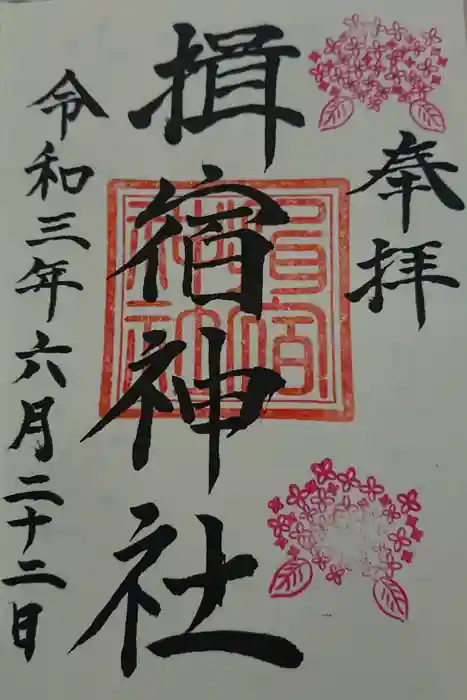 奉拝
揖宿神社
令和三年六月二十二日